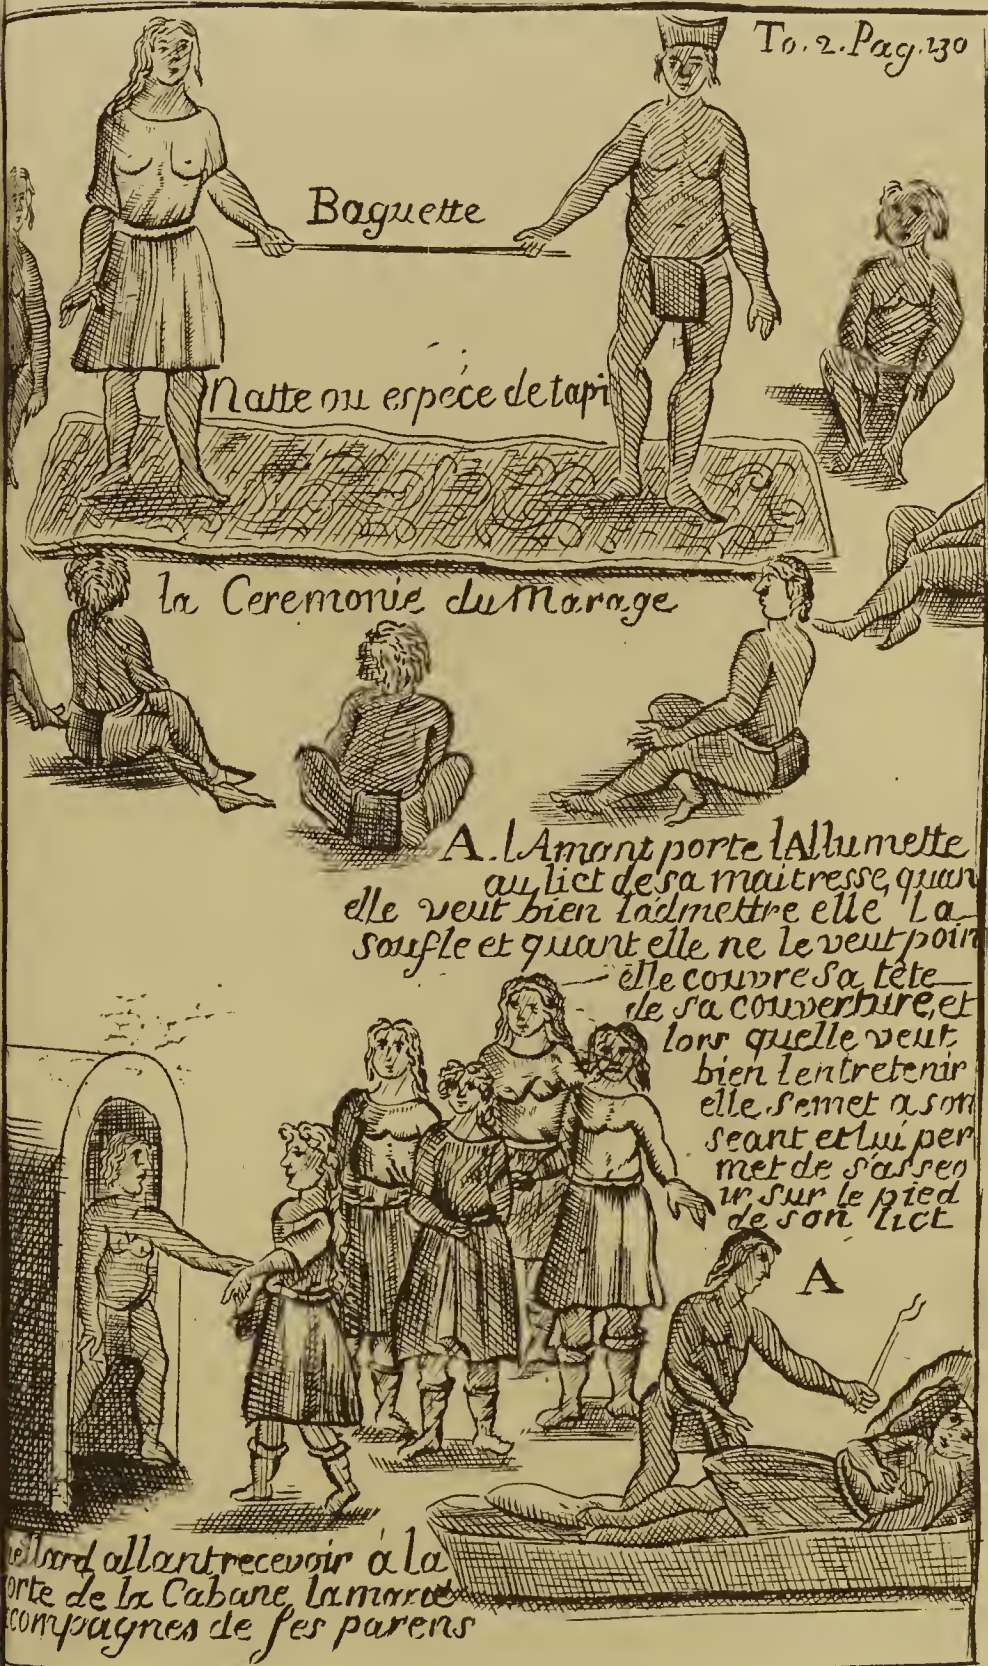 To. 2. Pag. 230
Baguette
Natte ou espéce de tapi
la Ceremonie du Marage
A. l Amant porte l Allumette
au lict de sa maitresse, quan
elle veut bien ladmettre elle La
soufle et quant elle ne le veut poin
elle couvre sa tête
de sa couverture, et
lors quelle veut
bien lentretenir
elle se met a son
seant et lui per
met de s'asseo
ir sur le pied
de son lict
A
ellard allant recevoir à la
orte de la Cabane la marié
compagnes de ses parens